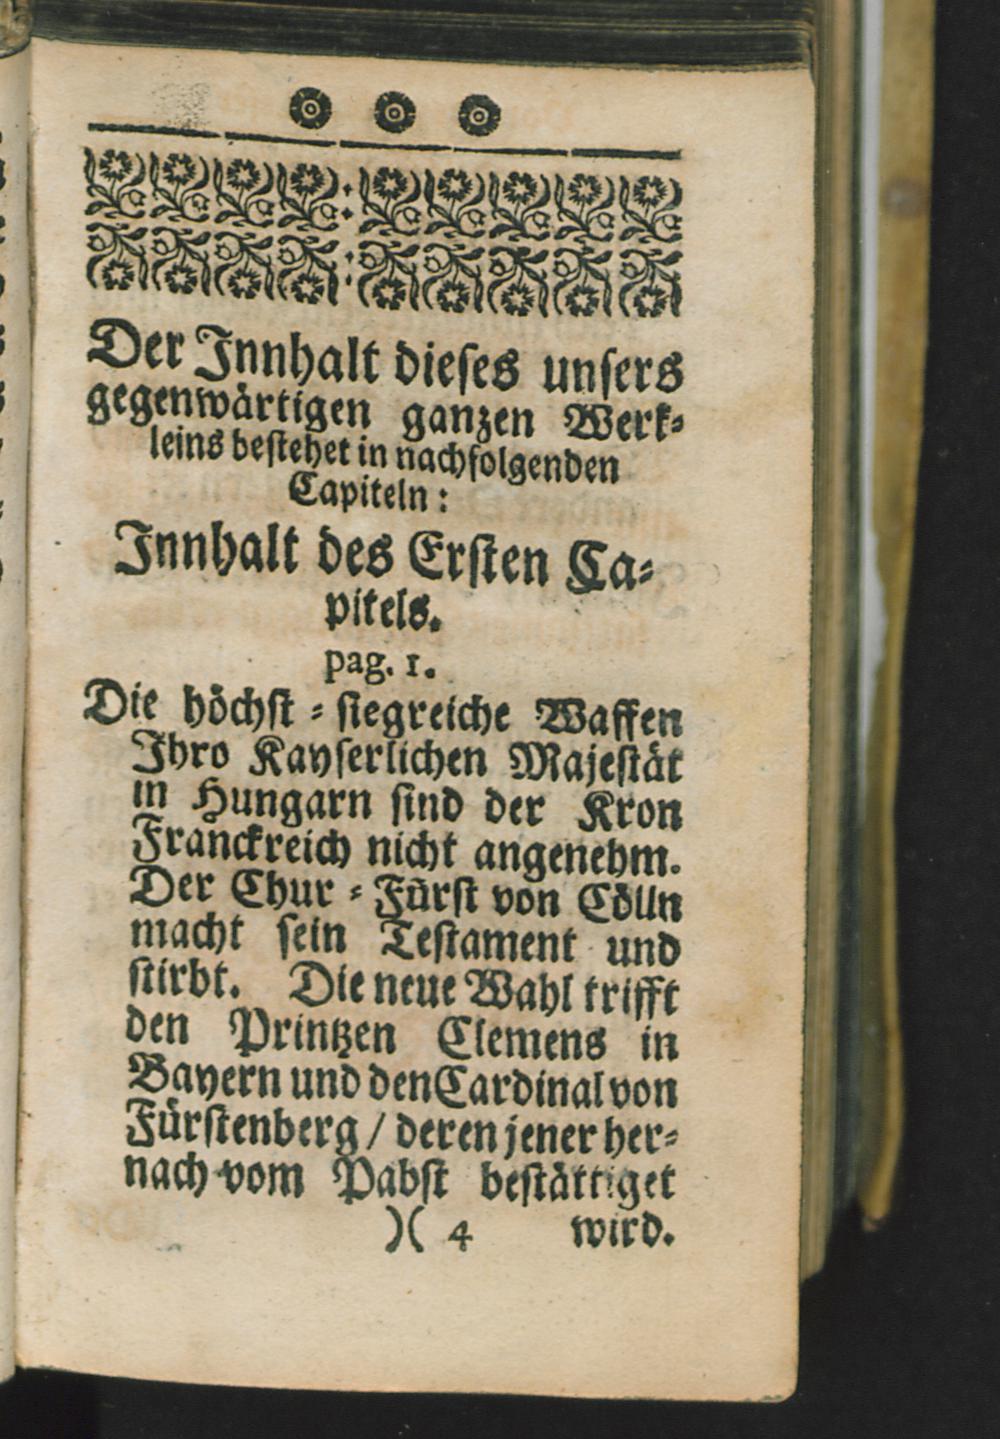 Der Innhalt dieses unsers
gegenwärtigen ganzen Werk-
leins bestehet in nachfolgenden
Capiteln:
Innhalt des Ersten Ca-
pitels.
pag. 1.
Die höchst-siegreiche Waffen
Ihro Kayserlichen Majestät
in Hungarn sind der Kron
Franckreich nicht angenehm.
Der Chur-Fürst von Cölln
macht sein Testament und
stirbt. Die neue Wahl trifft
den Printzen Clemens in
Bayern und den Cardinal von
Fürstenberg / deren jener her-
nach vom Pabst bestättiget
)( 4 wird.